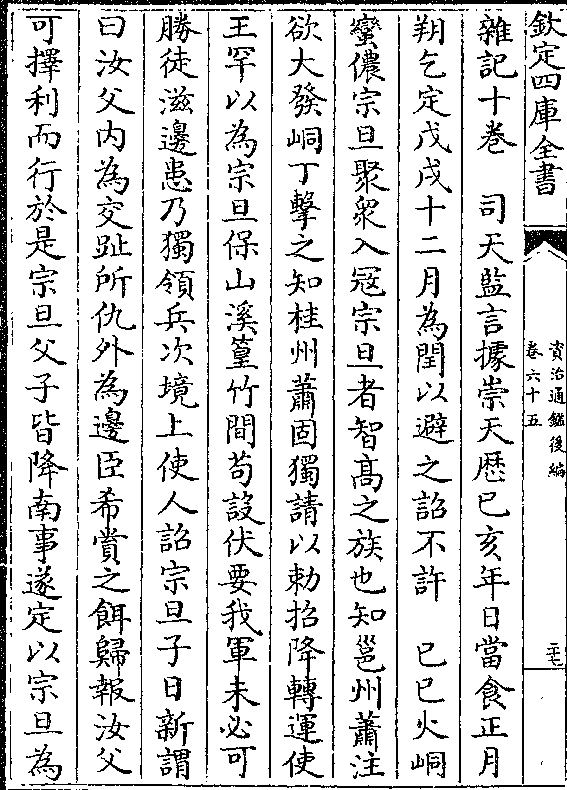 欽定四庫全書
資治通鑑後編
卷六十五
二十七
雜記十巻　司天監言據崇天歴已亥年日當食正月
朔乞定戊戌十二月為閏以避之詔不許　已巳火峒
蠻儂宗旦聚衆入冦宗旦者智髙之族也知邕州蕭注
欲大發峒丁擊之知桂州蕭固獨請以勅招降轉運使
王罕以為宗旦保山溪篁竹間苟設伏要我軍未必可
勝徒滋邊患乃獨領兵次境上使人詔宗旦子日新謂
曰汝父内為交趾所仇外為邊臣希賞之餌歸報汝父
可擇利而行於是宗旦父子皆降南事遂定以宗旦為